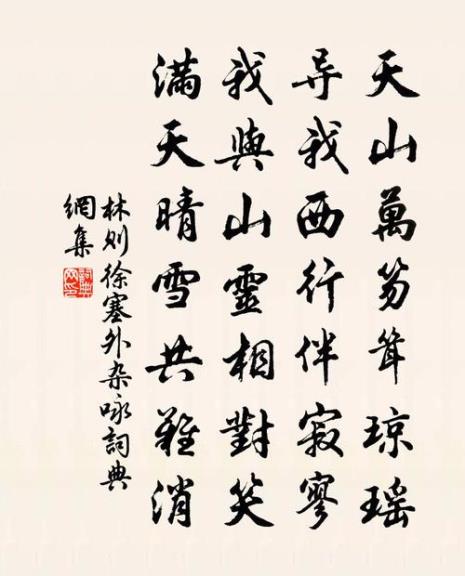 天山萬笏耸琼瑶
导我西行伴寂寥
我與山靈相對笑
滿天晴雪共難消
林则徐塞外杂咏詞典
網集